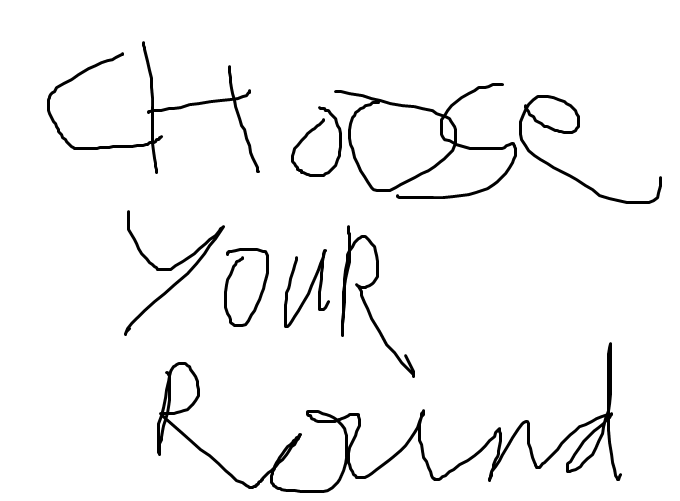 CHOOSe
YOUR
Round